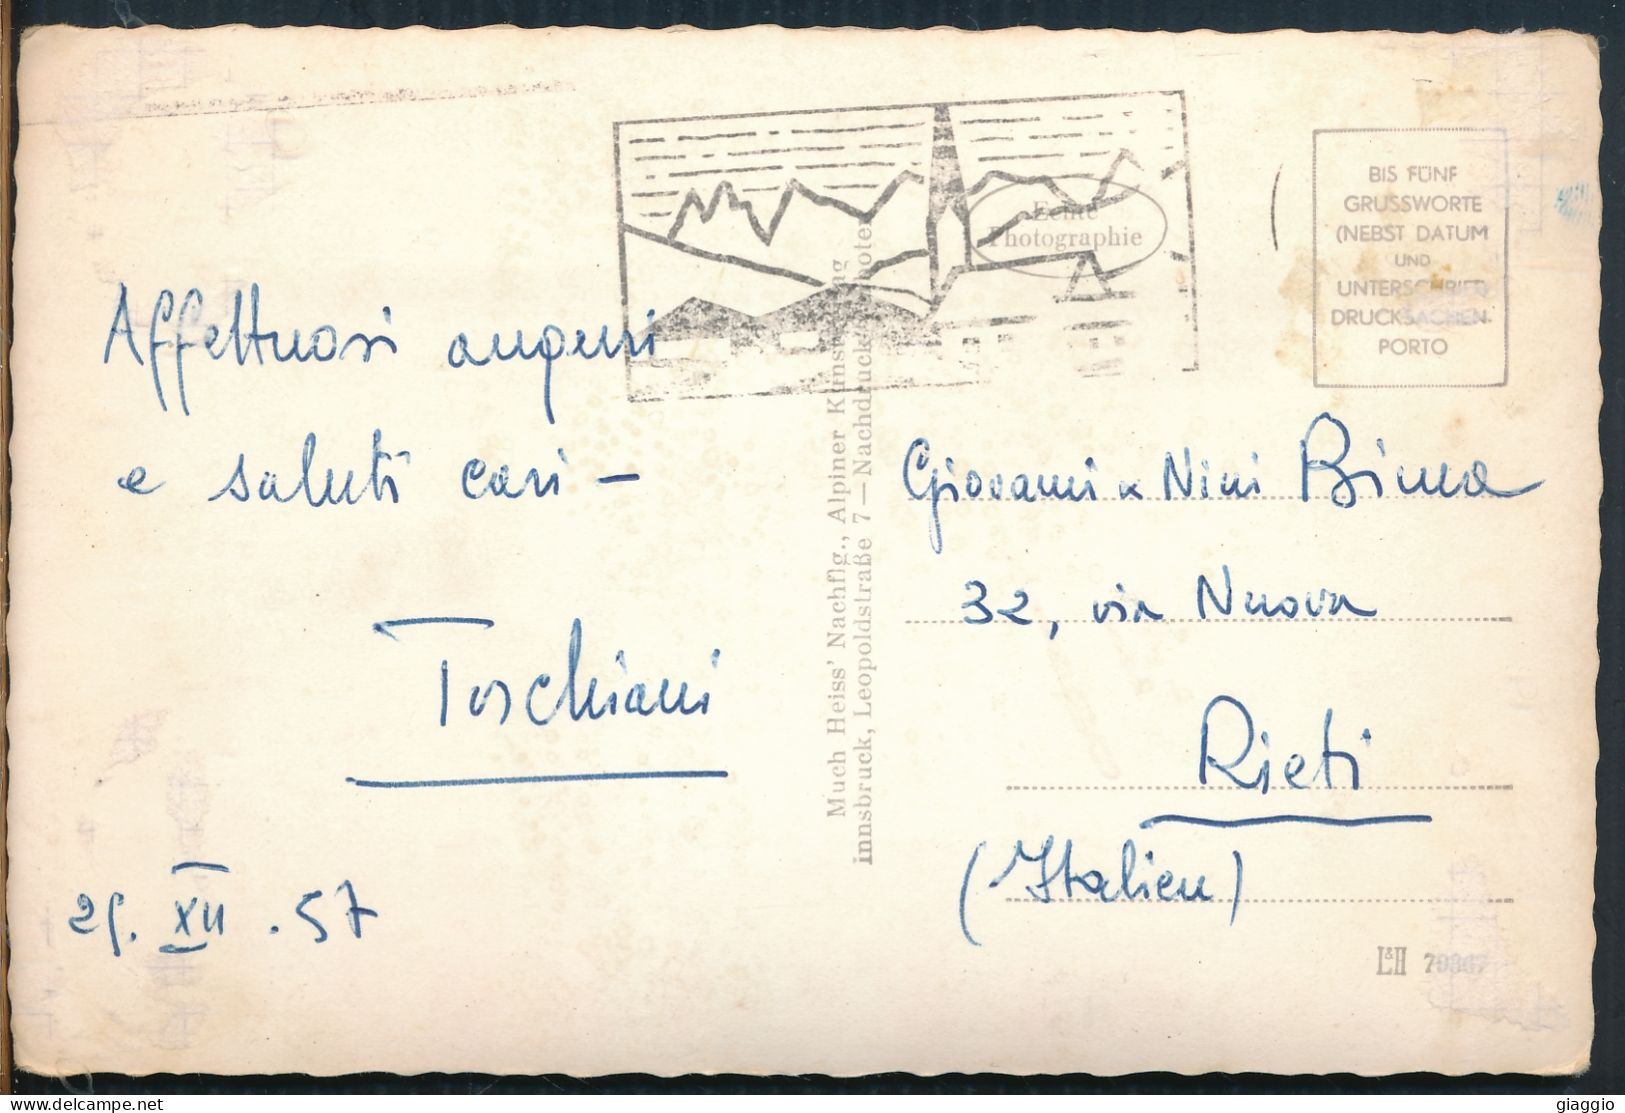 Affettuosi auguri
e saluti cari —
Toschiani
25. XII. 57
Much Heiss' Nachflg., Alpiner
Innsbruck, Leopoldstraße 7 — Nachdruck verboten
Echte
Photographie
BIS FÜNF
GRUSSWORTE
(NEBST DATUM
UND
UNTERSCHRIFT)
DRUCKSACHEN-
PORTO
Giovanni e Nini Bima
32, via Nuova
Rieti
(Italien)
L&H
delcampe.net
giaggio